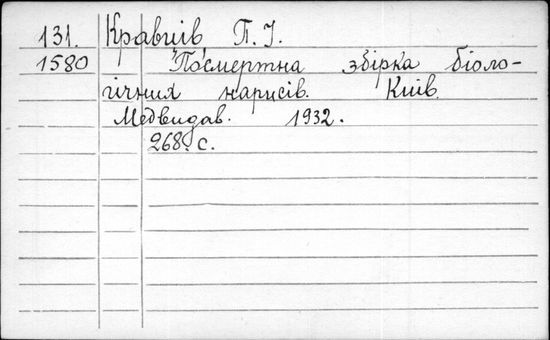 131. Кравців П. І.
1580 Посмертна збірка біоло-
гічних нарисів. Київ.
Медвидав. 1932.
268. с.